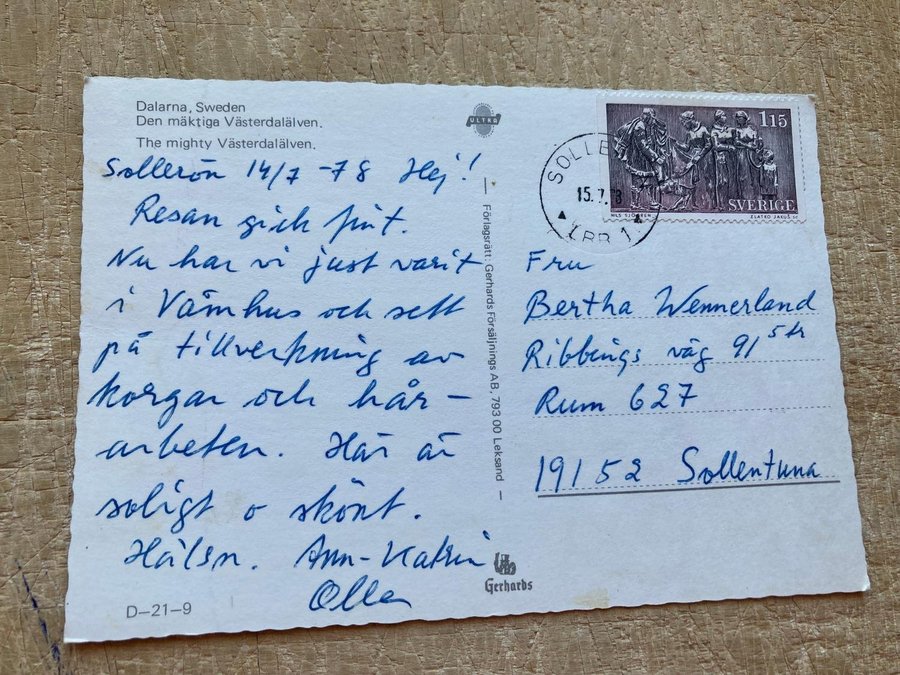 Dalarna, Sweden
Den mäktiga Västerdalälven.
The mighty Västerdalälven.
Sollerön 14/7 -78 Hej!
Resan gick fint.
Nu har vi just varit
i Våmhus och sett
på tillverkning av
korgar och hår-
arbeten. Här är
soligt o skönt.
Hälsn. Ann-Katrin
Olle
D-21-9
ULTRA
Förlagsrätt: Gerhards Försäljnings AB, 793 00 Leksand
Gerhards
SOLLE
15.7.78
LBR 1
1.15
SVERIGE
NILS SJÖGREN
ZLATKO JAKUŠ SC
Fru
Bertha Wennerland
Ribbings väg 91 5 tr
Rum 627
191 52 Sollentuna